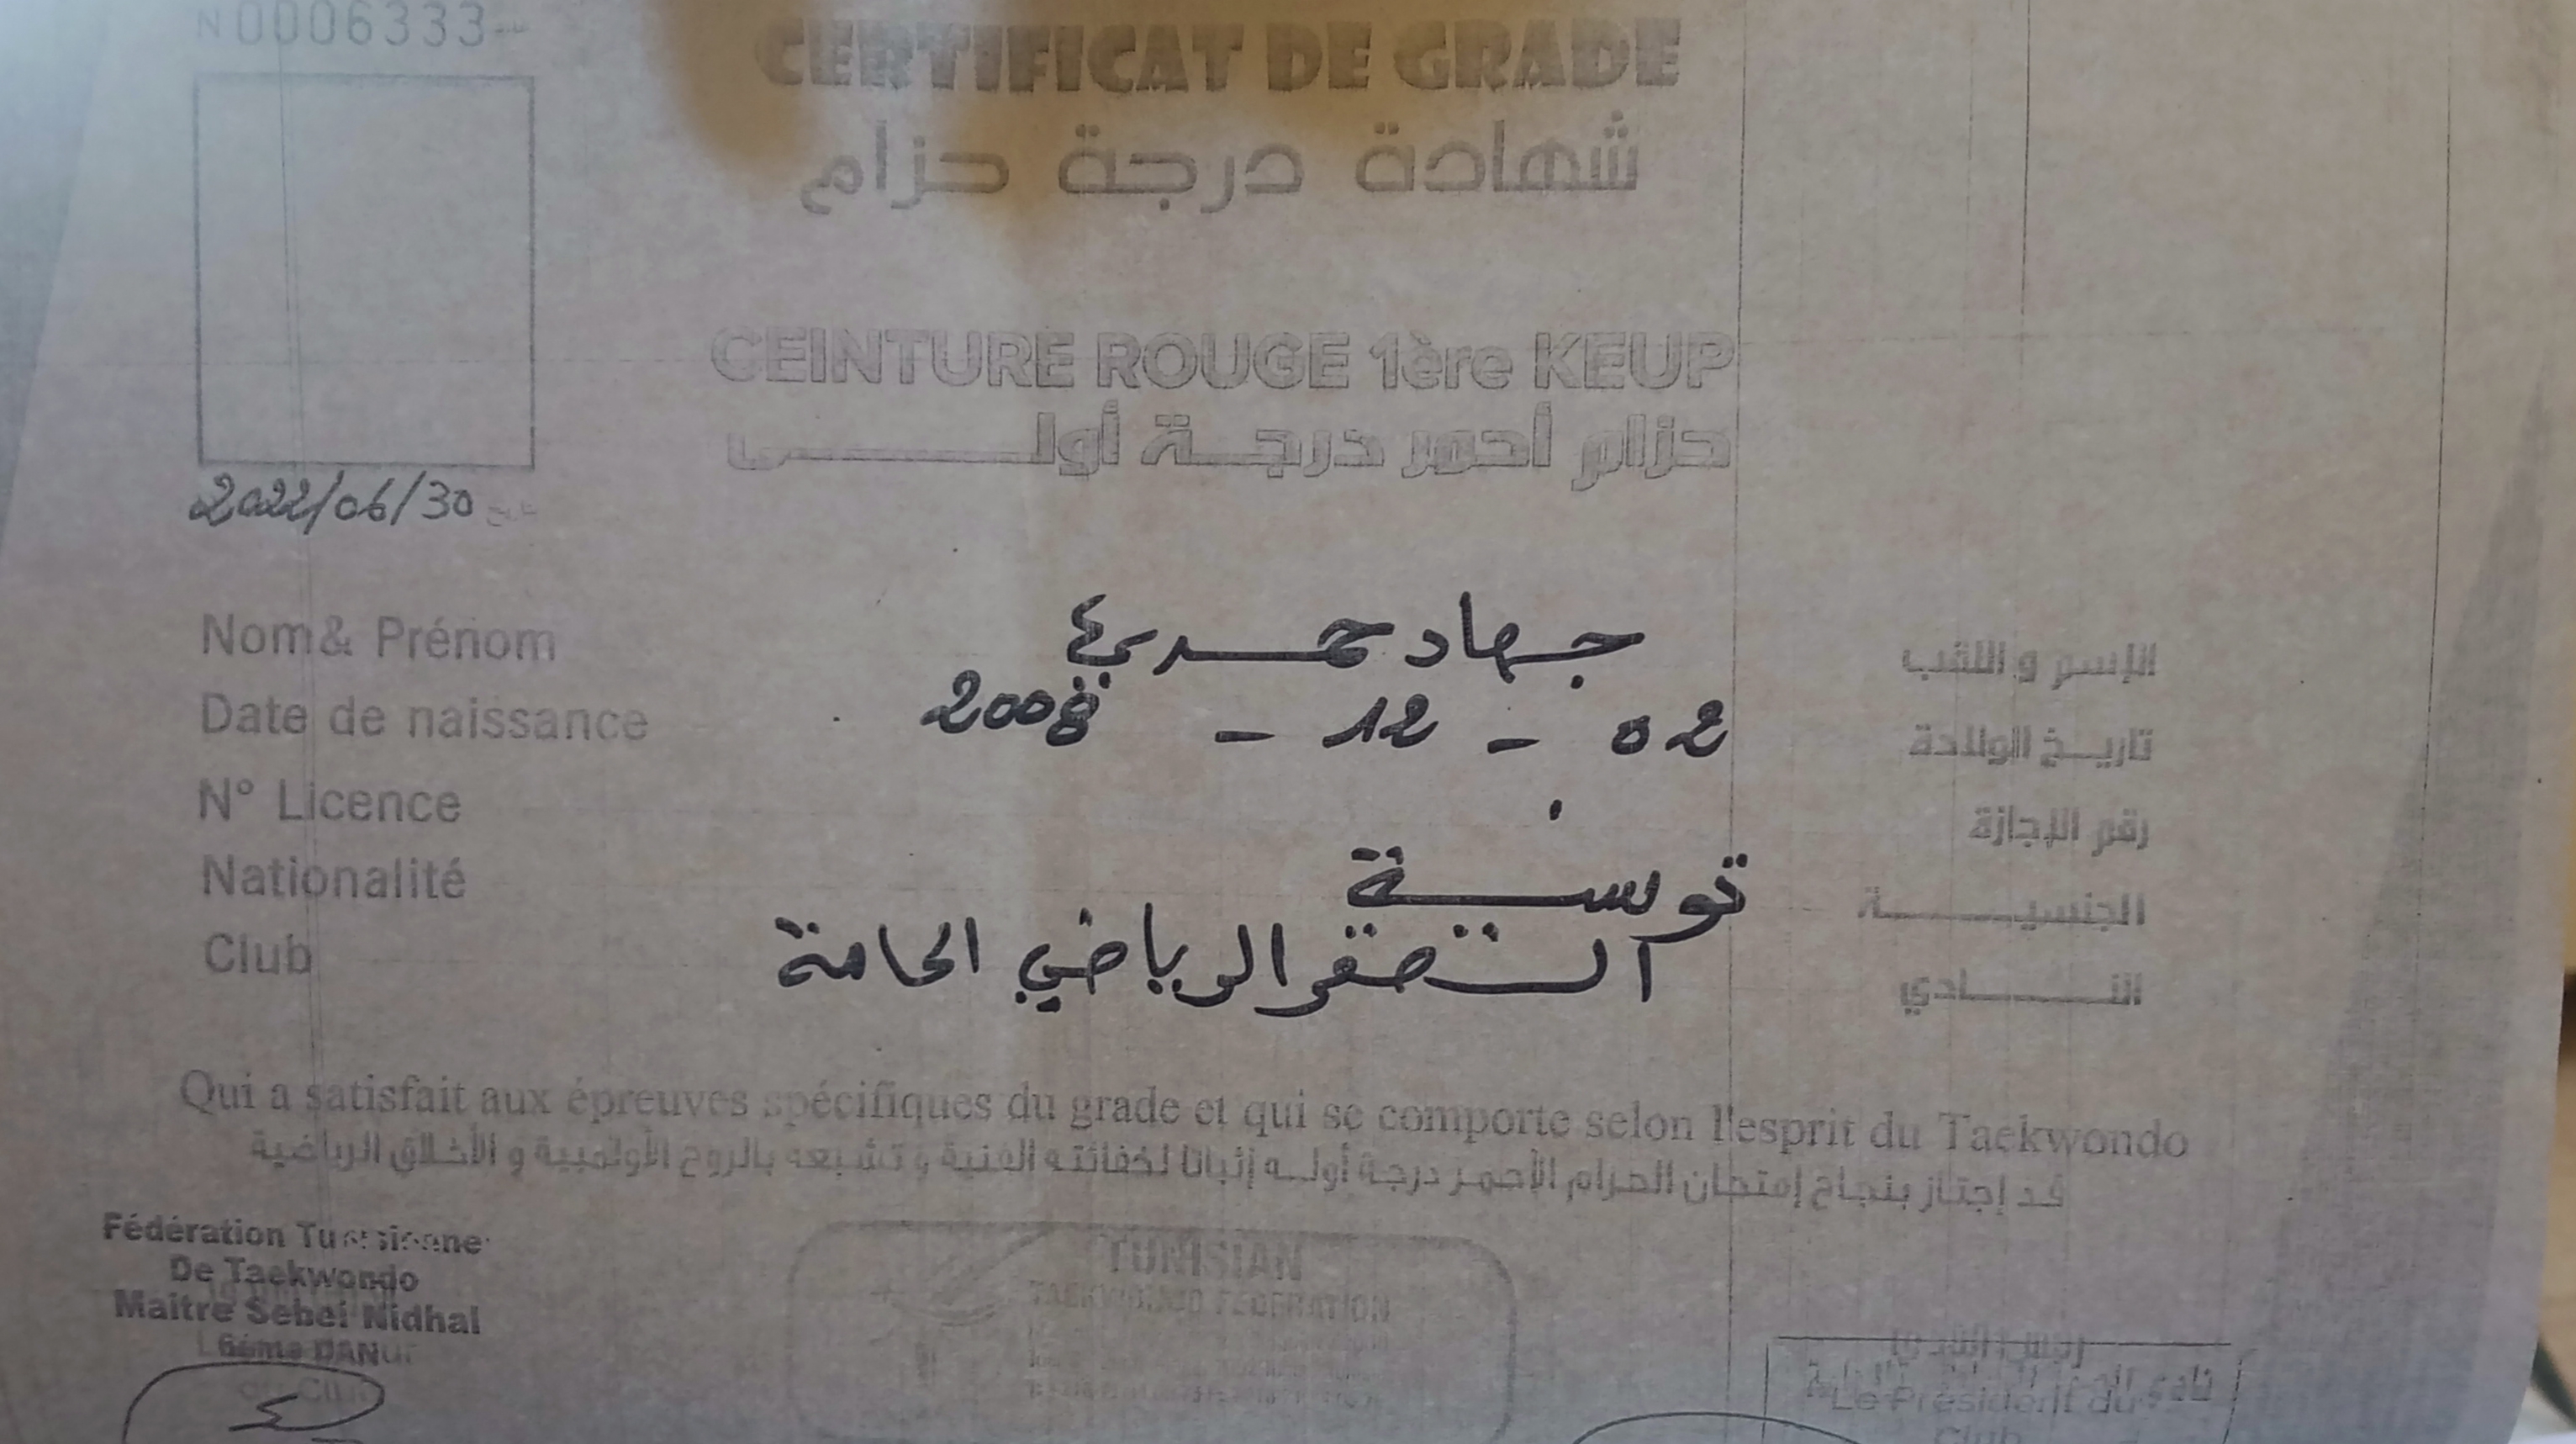 N 0006333
CERTIFICAT DE GRADE
شهادة درجة حزام
CEINTURE ROUGE 1ère KEUP
حزام أحمر درجة أولى
2022/06/30 تاريخ
Nom& Prénom جهاد حمدي الإسم و اللقب
Date de naissance 02 - 12 - 2008 تاريخ الولادة
N° Licence رقم الإجازة
Nationalité تونسية الجنسية
Club الصقر الرياضي الحامة النادي
Qui a satisfait aux épreuves spécifiques du grade et qui se comporte selon l'esprit du Taekwondo
قد إجتاز بنجاح إمتحان الحزام الأحمر درجة أولى إثباتا لكفائته الفنية و تشبعه بالروح الأولمبية و الأخلاق الرياضية
Fédération Tunisienne
De Taekwondo
Maitre Sebei Nidhal
6ème DAN
TUNISIAN
TAEKWONDO FEDERATION
Le Président du
Club